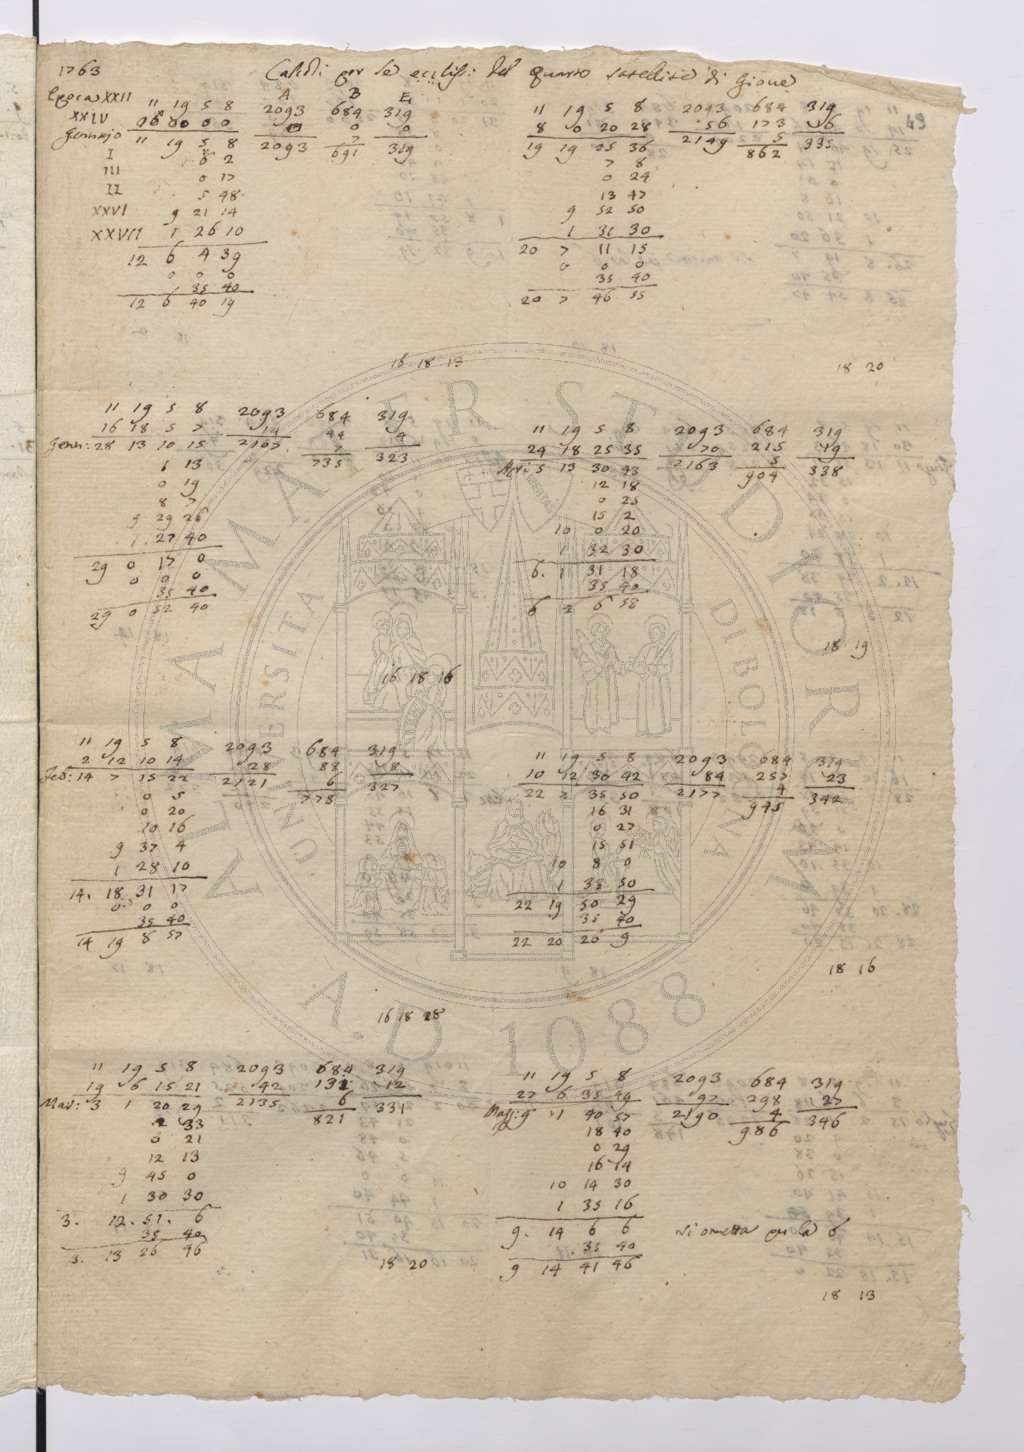 1763
Calcoli per le ecclissi del quarto satellite di Giove
49
Epoca XXII 11 19 5 8
XXIV 00 00 0 0
Gennajo 11 19 5 8
I 6 2
III 0 17
II 5 48
XXVI 9 21 14
XXVII 1 26 10
12 6 4 39
0 0 0
35 40
12 6 40 19
A B E
2093 684 319
0 0 0
2093 7 319
691
16 18 13
11 19 5 8 2093 684 319
8 0 20 28 56 173 16
19 19 25 36 2149 5 335
862
7 8
0 24
13 47
9 52 50
1 31 30
20 7 11 15
0 0 0
35 40
20 7 46 55
18 20
11 19 5 8 2093 684 319
16 18 5 7 14 44 4
Genn: 28 13 10 15 2107 7 323
735
1 13
0 19
8 7
9 29 26
1 27 40
29 0 17 0
0 0 0
35 40
29 0 52 40
16 18 16
11 19 5 8 2093 684 319
24 18 25 35 70 215 19
Apr: 5 13 30 43 2163 5 338
904
12 18
0 25
15 2
10 0 20
1 32 30
6. 1 31 18
35 40
6 2 6 58
18 19
11 19 5 8 2093 684 319
2 12 10 14 28 88 8
Feb: 14 7 15 22 2121 6 327
778
0 5
0 20
10 16
9 37 4
1 28 10
14. 18 31 17
0 0 0
35 40
14 19 6 57
16 18 28
11 19 5 8 2093 684 319
10 12 30 42 84 257 23
22 7 35 50 2177 4 342
945
16 31
0 27
15 51
10 8 0
1 33 50
22 19 50 29
35 40
22 20 26 9
18 16
11 19 5 8 2093 684 319
19 6 15 21 42 131 12
Mar: 3 1 20 29 2135 6 331
821
2 33
0 21
12 13
9 45 0
1 30 30
3. 12. 51. 6
35 40
3. 13 26 46
18 20
11 19 5 8 2093 684 319
27 6 35 49 97 298 27
Magg: 9 1 40 57 2190 4 346
986
18 40
0 29
16 14
10 14 30
1 35 16
9. 14 6 6
35 40
9 14 41 46
si ometta per la 6
18 13
ALMA MATER STUDIORUM
UNIVERSITÀ DI BOLOGNA
A.D. 1088